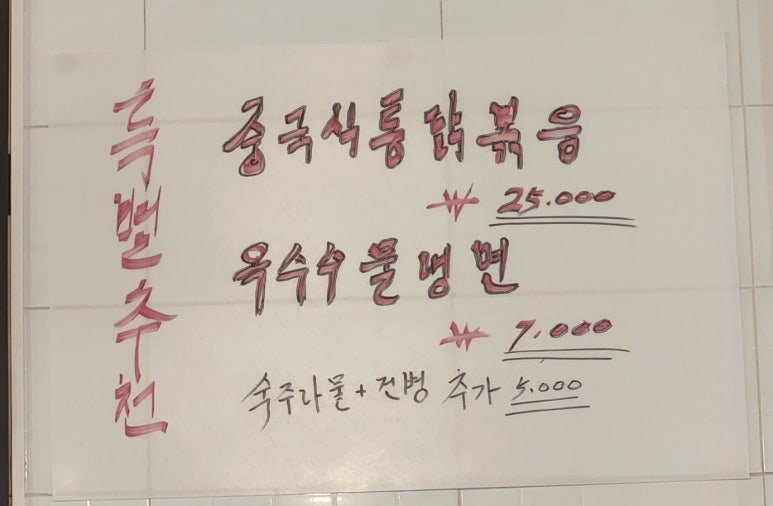 특별추천
중국식통닭볶음
₩ 25.000
옥수수물냉면
₩ 7.000
숙주라물+건병 추가 5.000